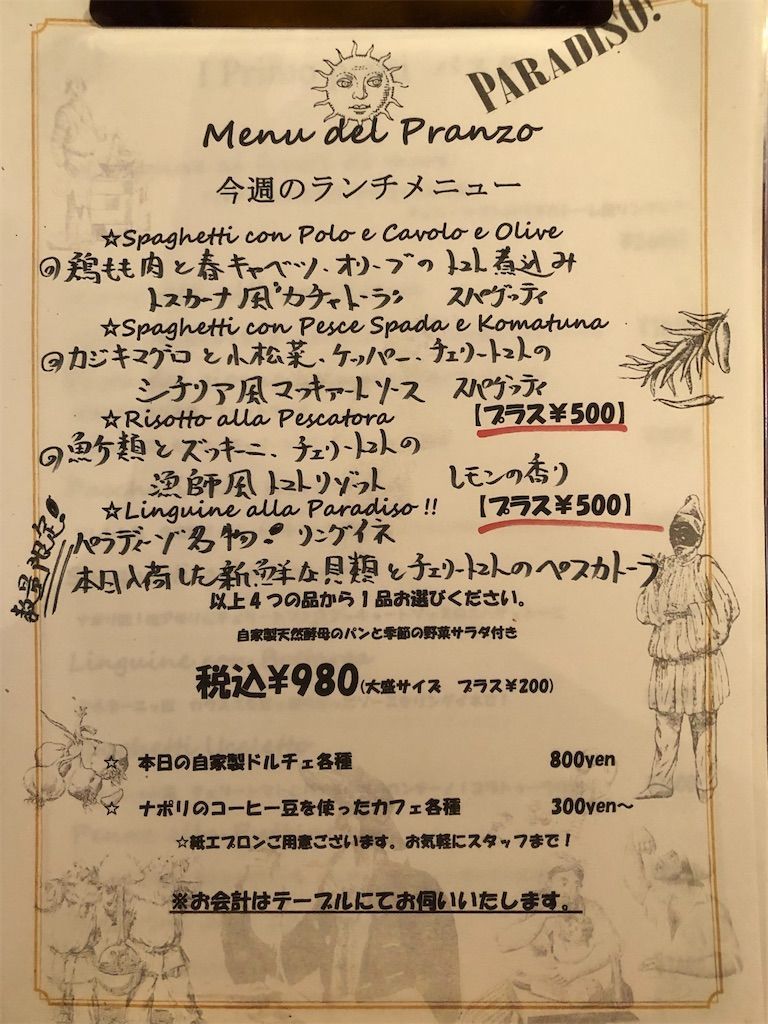 PARADISO!
Menu del Pranzo
今週のランチメニュー
☆Spaghetti con Polo e Cavolo e Olive
鶏もも肉と春キャベツ、オリーブのトマト煮込み
トスカーナ風"カチャトーラ" スパゲッティ
☆Spaghetti con Pesce Spada e Komatuna
カジキマグロと小松菜、ケッパー、チェリートマトの
シチリア風マッキァートソース スパゲッティ
☆Risotto alla Pescatora 【プラス￥500】
魚介類とズッキーニ、チェリートマトの
漁師風トマトリゾット レモンの香り
☆Linguine alla Paradiso !! 【プラス￥500】
数量限定!
パラディーゾ名物! リングイネ
本日入荷した新鮮な貝類とチェリートマトのペスカトーラ
以上４つの品から１品お選びください。
自家製天然酵母のパンと季節の野菜サラダ付き
税込￥980(大盛サイズ プラス￥200)
☆ 本日の自家製ドルチェ各種 800yen
☆ ナポリのコーヒー豆を使ったカフェ各種 300yen～
☆紙エプロンご用意ございます。お気軽にスタッフまで！
※お会計はテーブルにてお伺いいたします。